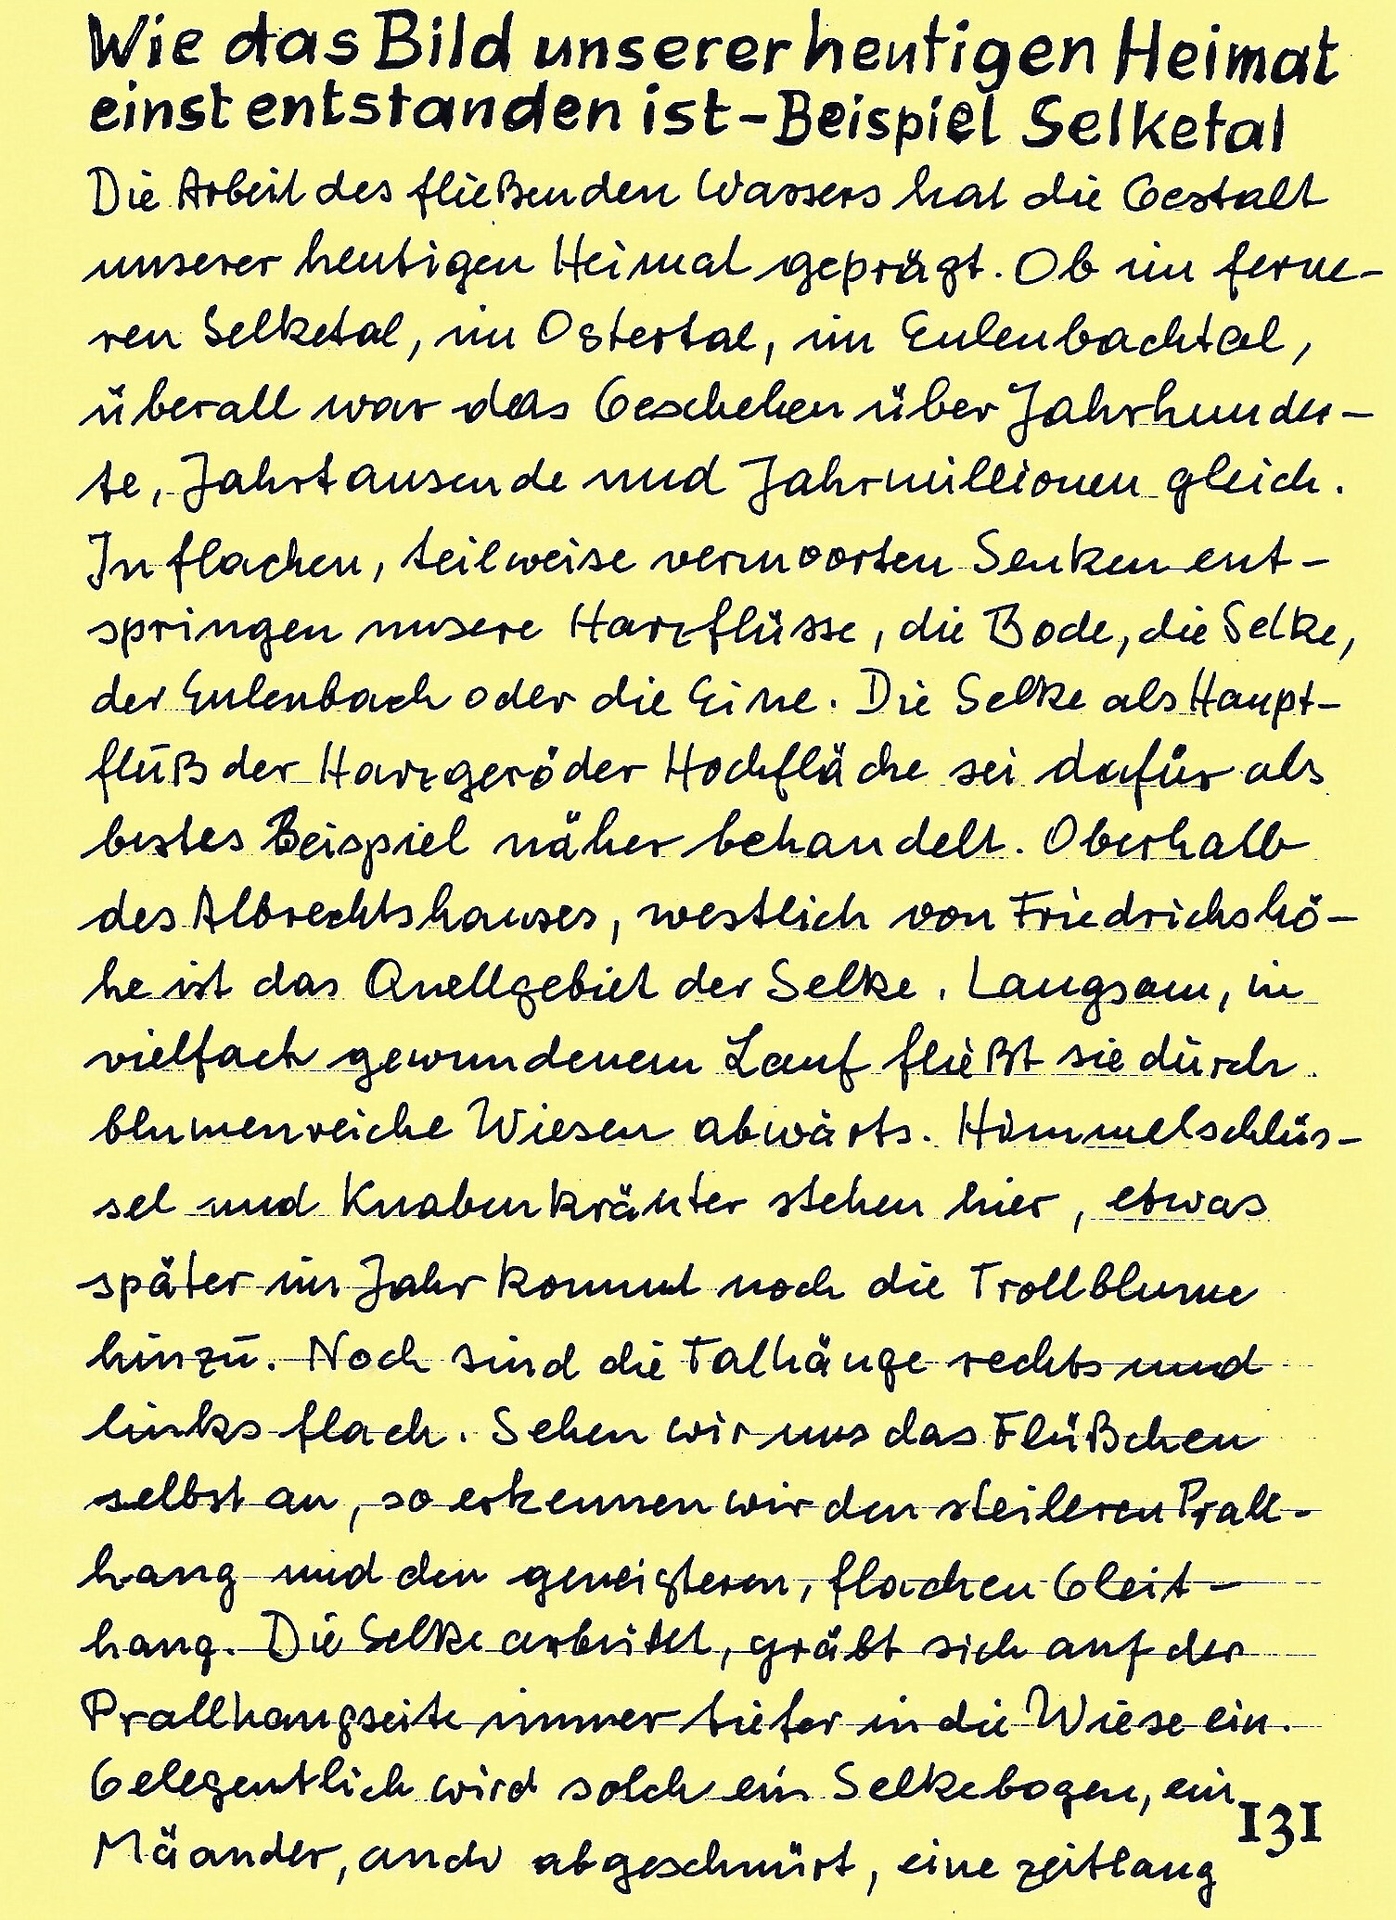 Wie das Bild unserer heutigen Heimat
einst entstanden ist - Beispiel Selketal
Die Arbeit des fließenden Wassers hat die Gestalt
unserer heutigen Heimat geprägt. Ob im ferne-
ren Selketal, im Ostertal, im Eulenbachtal,
überall war das Geschehen über Jahrhunder-
te, Jahrtausende und Jahrmillionen gleich.
In flachen, teilweise vermoorten Senken ent-
springen unsere Harzflüsse, die Bode, die Selke,
der Eulenbach oder die Eine. Die Selke als Haupt-
fluß der Harzgeröder Hochfläche sei dafür als
bestes Beispiel näher behandelt. Oberhalb
des Albrechtshauses, westlich von Friedrichshö-
he ist das Quellgebiet der Selke. Langsam, in
vielfach gewundenem Lauf fließt sie durch
blumenreiche Wiesen abwärts. Himmelschlüs-
sel und Knabenkräuter stehen hier, etwas
später im Jahr kommt noch die Trollblume
hinzu. Noch sind die Talhänge rechts und
links flach. Sehen wir uns das Flüßchen
selbst an, so erkennen wir den steileren Prall-
hang und den geneigteren, flachen Gleit-
hang. Die Selke arbeitet, gräbt sich auf der
Prallhangseite immer tiefer in die Wiese ein.
Gelegentlich wird solch ein Selkebogen, ein
Mäander, auch abgeschnürt, eine zeitlang
131